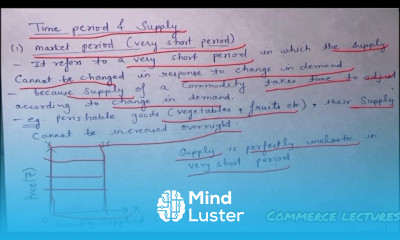 Time period & Supply
(1) market period (very short period)
- It refers to a very short period in which the supply
Cannot be changed in response to change in demand
- because supply of a commodity takes time to adjust
according to change in demand.
- eg perishable goods (vegetables, fruits etc), their supply
Cannot be increased overnight.
Supply is perfectly inelastic in
very short period
Price(₹)
Y
SS
X
O
Quantity supplied
Mind
Luster
COMMERCE lectures